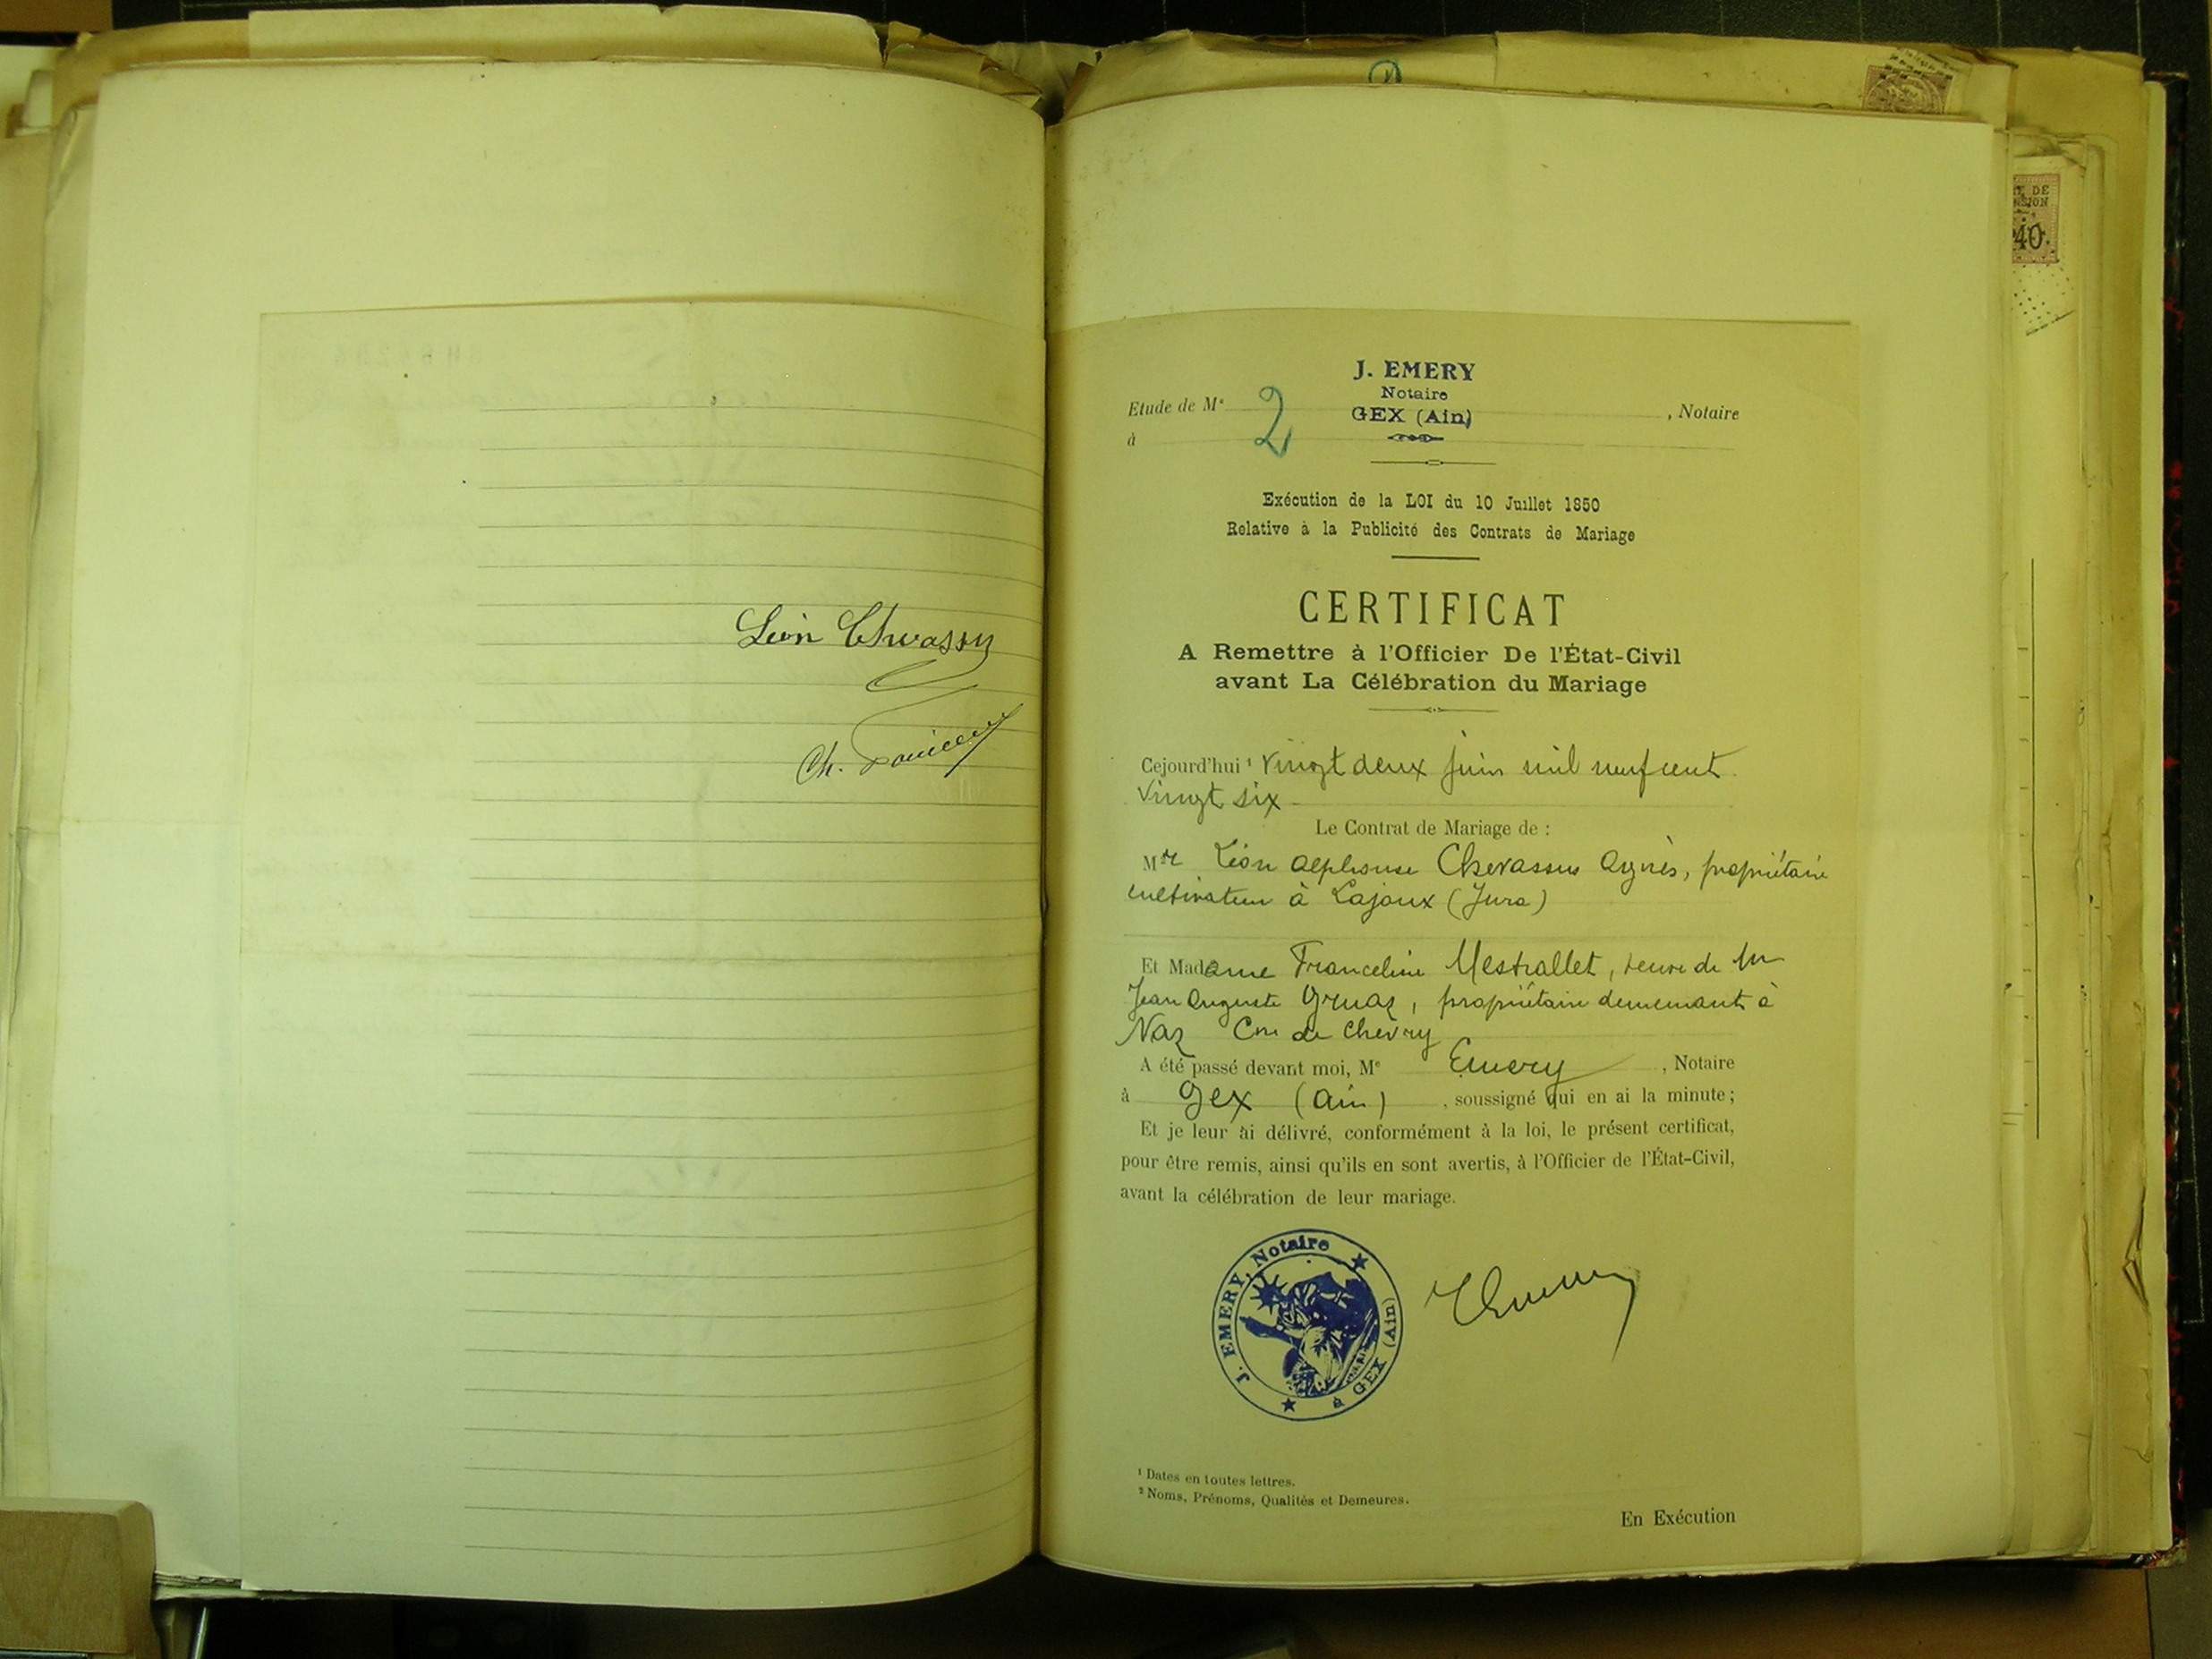 Léon Chvassu
Ch.
J. EMERY
Notaire
GEX (Ain)
Etude de Me , Notaire
à
2
Exécution de la LOI du 10 Juillet 1850
Relative à la Publicité des Contrats de Mariage
CERTIFICAT
A Remettre à l'Officier De l'État-Civil
avant La Célébration du Mariage
Cejourd'hui ¹ Vingt deux juin mil neuf cent
Vingt six
Le Contrat de Mariage de :
Mr Léon Alphonse Chevassus Agnès, propriétaire
cultivateur à Lajoux (Jura)
Et Madame Franceline Mestrallet, veuve de Mr
Jean Auguste Gruaz, propriétaire demeurant à
Naz Cne de Chevry
A été passé devant moi, Me Emery , Notaire
à Gex (Ain) , soussigné qui en ai la minute ;
Et je leur ai délivré, conformément à la loi, le présent certificat,
pour être remis, ainsi qu'ils en sont avertis, à l'Officier de l'État-Civil,
avant la célébration de leur mariage.
J. EMERY, Notaire
à GEX (Ain)
JEmery
¹ Dates en toutes lettres.
² Noms, Prénoms, Qualités et Demeures.
En Exécution
DE
40